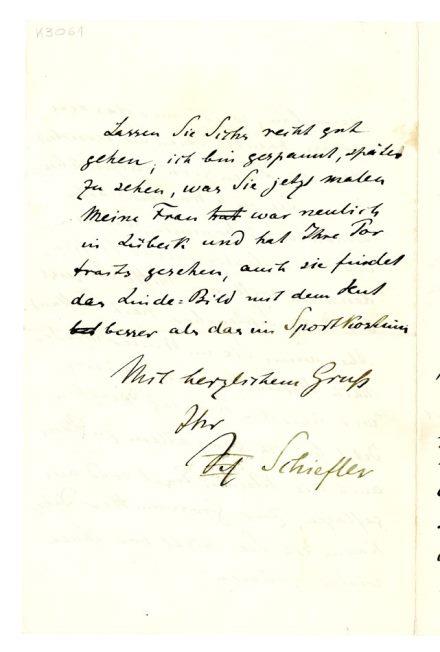 K3061
Lassen Sie Sichs recht gut
gehen, ich bin gespannt, später
zu sehen, was Sie jetzt malen
Meine Frau hat war neulich
in Lübeck und hat Ihre Por
traits gesehen, auch sie findet
das Linde=Bild mit dem Hut
besser als das im Sportkostüm
Mit herzlichem Gruß
Ihr
Schiefler